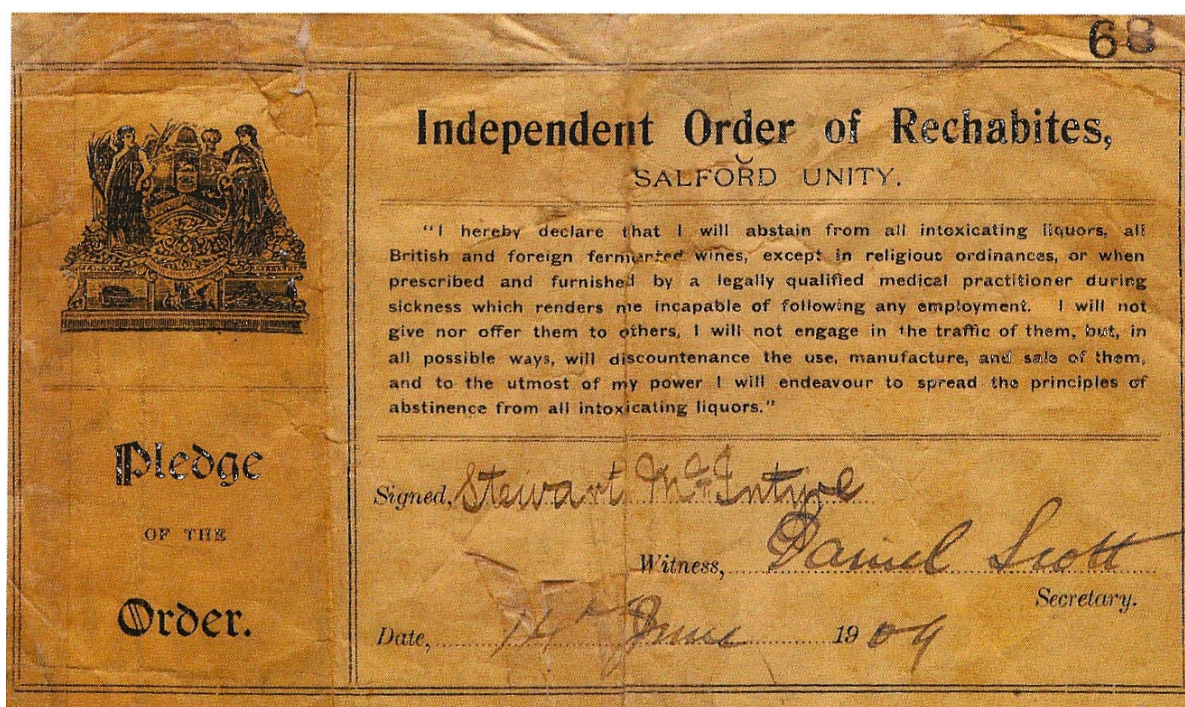 68
Independent Order of Rechabites,
SALFORD UNITY.
"I hereby declare that I will abstain from all intoxicating liquors, all
British and foreign fermented wines, except in religious ordinances, or when
prescribed and furnished by a legally qualified medical practitioner during
sickness which renders me incapable of following any employment. I will not
give nor offer them to others, I will not engage in the traffic of them, but, in
all possible ways, will discountenance the use, manufacture, and sale of them,
and to the utmost of my power I will endeavour to spread the principles of
abstinence from all intoxicating liquors."
Pledge
OF THE
Order.
Signed, Stewart McIntire
Witness, Daniel Scott
Secretary.
Date, 14th June 1909